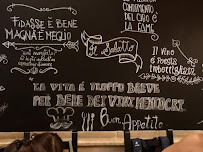 Fidasse è bene
magnà è meglio
CONDIMENTO
DEL CIBO È
LA FAME
Il Salotto
Il vino
è poesia
imbottigliata
LA VITA È TROPPO BREVE
PER BERE DEI VINI MEDIOCRI
Buon Appetito